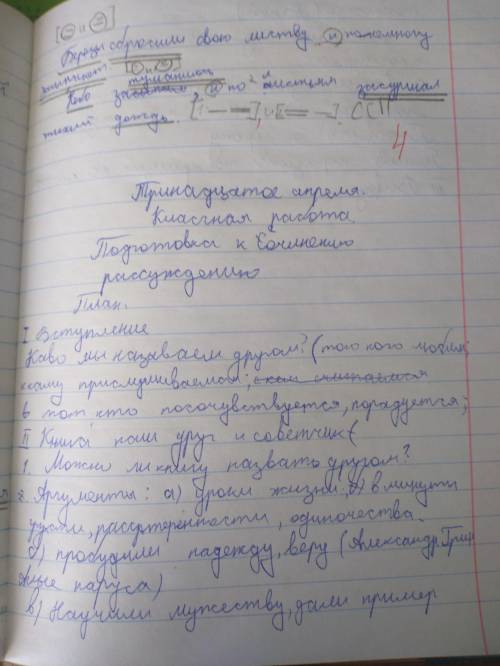 [О и О]
Березы сбросили свою листву и по-немногу
[О и О]
Небо туманится, и по листьям зашуршал
тихий дождь. [I — ═], и [═ —]. ССП
4
Тринадцатое апреля.
Классная работа
Подготовка к сочинению
рассуждению
План.
I Вступление
Каво мы называем другом? (того кого любим,
к кому прислушиваемся;
в тот кто посочувствуется, порадуется;
II Книга наш друг и советчик (
1. Можно ли книгу назвать другом?
2. Аргументы: а) уроки жизни, б) в минуты
грусти, рассерженности, одиночества.
б) пробудили надежду, веру (Александр Грин
Алые паруса)
в) Научили мужеству, дали пример